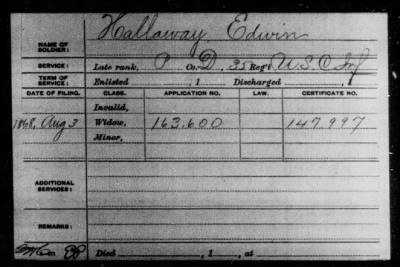 NAME OF SOLDIER: Hallaway, Edwin
SERVICE: Late rank, P Co. D, 35 Reg't U.S.C. Inf
TERM OF SERVICE: Enlisted , 1 Discharged , 1
DATE OF FILING. CLASS. APPLICATION NO. LAW. CERTIFICATE NO.
Invalid,
1868, Aug 3 Widow, 163.600 147.997
Minor,
ADDITIONAL SERVICES:
REMARKS:
Died , 1 , at